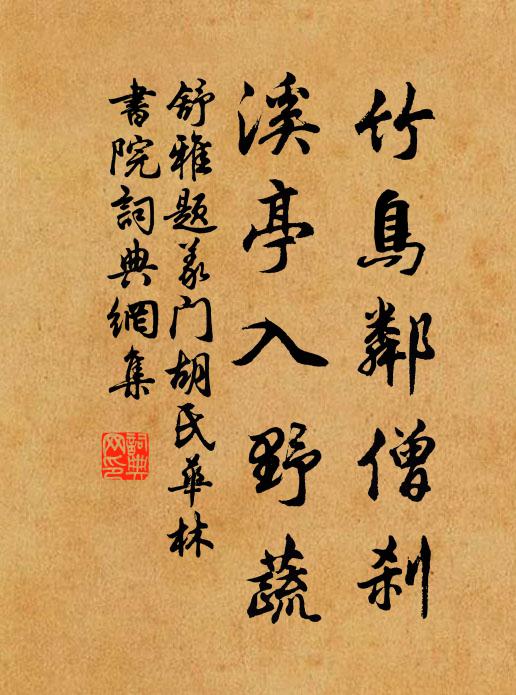 竹鳥鄰僧刹
溪亭入野蔬
舒雅題義门胡氏華林
書院詞典網集
詞典网印